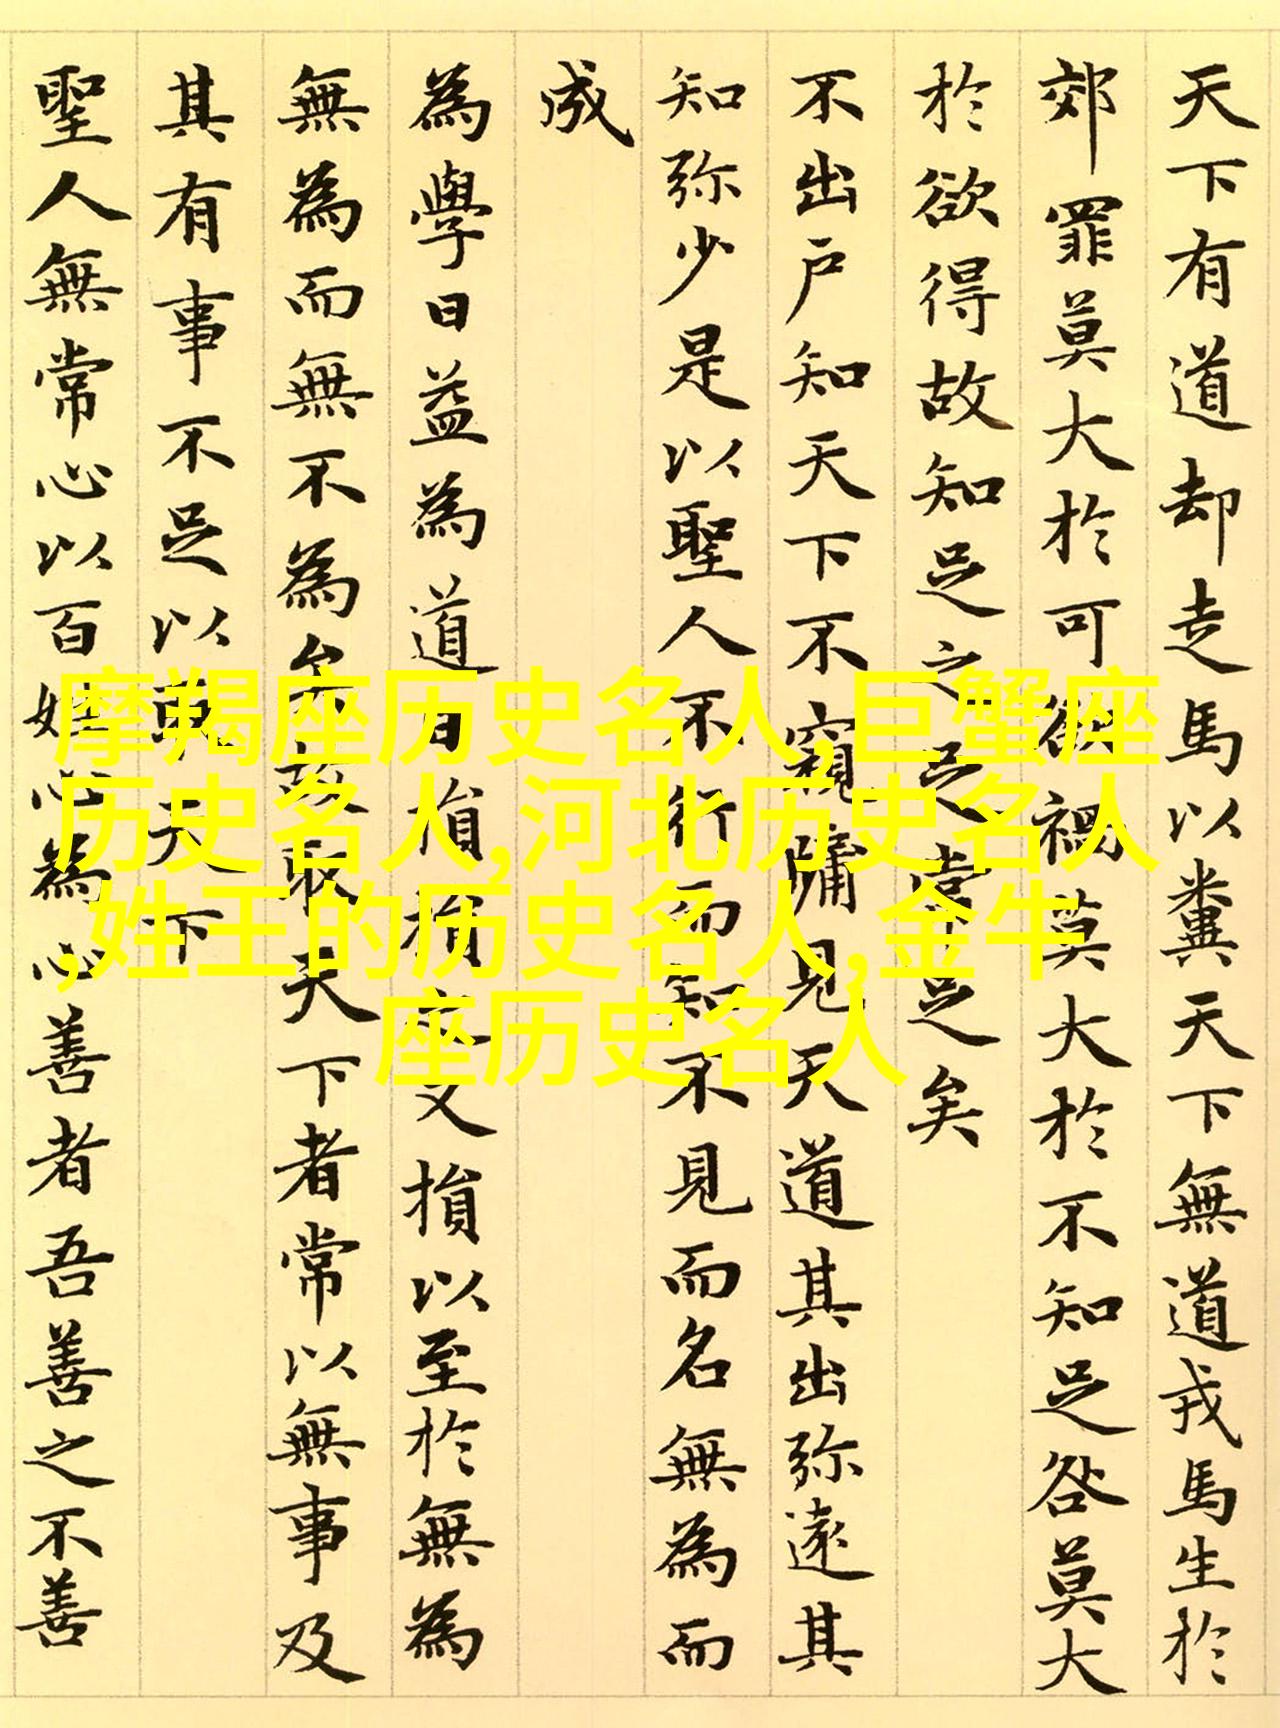 天下有道却走馬以糞天下無道戎馬生於
郊罪莫大於可欲禍莫大於不知足咎莫大
於欲得故知足之足常足矣
不出户知天下不窺牖見天道其出弥遠其
知弥少是以聖人不行而知不見而名無為而
成
為學日益為道日損損之又損以至於無為
無為而無不為矣故取天下者常以無事及
其有事不足以取天下
聖人無常心以百姓心為心善者吾善之不善
摩羯座历史名人,巨蟹座
历史名人,河北历史名人
,姓王的历史名人,金牛
座历史名人